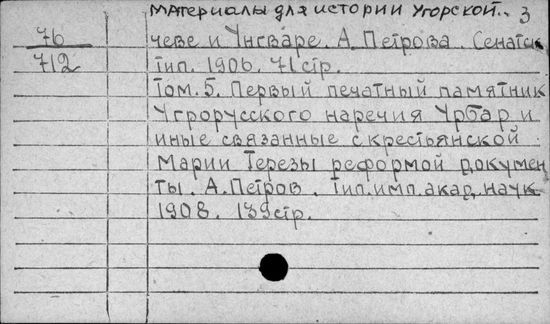 материалы для истории Угорской.. 3
76
712
чеве и Унгваре. А. Петрова. Сенатск
тип. 1906. 71 стр.
Том. 5. Первый печатный памятник
Угрорусского наречия Урбар и
иные связанные с крестьянской
Марии Терезы реформой докумен
ты. А. Петров. Тип. имп. акад. наук
1908. 139 стр.